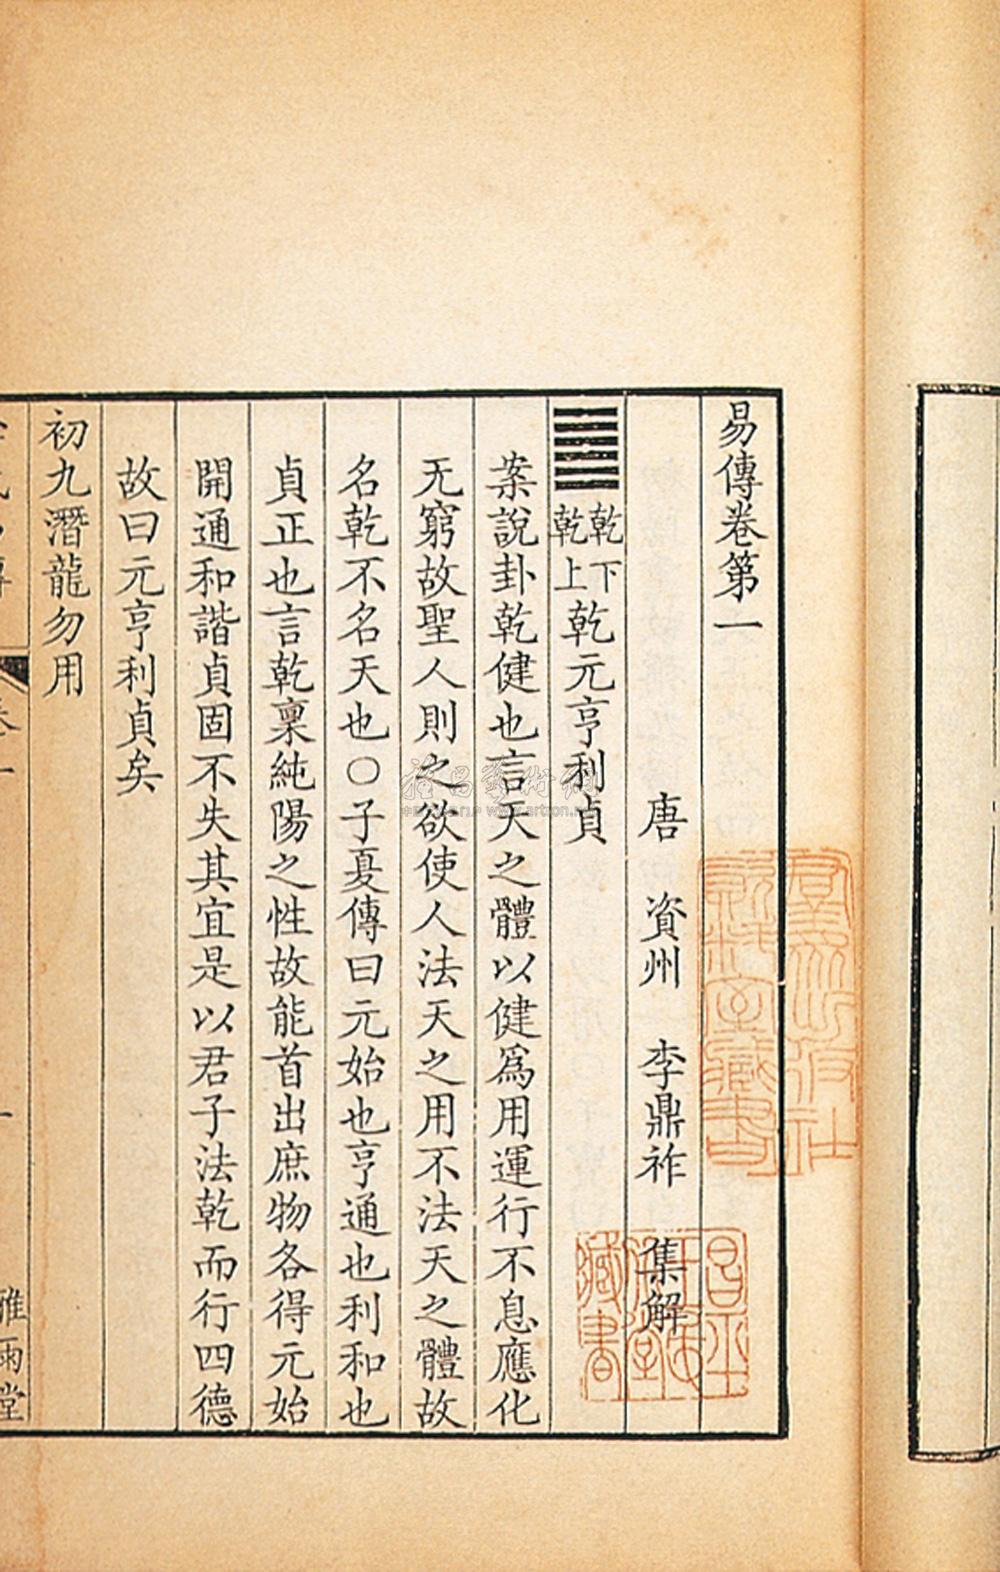 易傳卷第一
唐 資州 李鼎祚 集解
乾下乾上 乾元亨利貞
案說卦乾健也言天之體以健爲用運行不息應化
无窮故聖人則之欲使人法天之用不法天之體故
名乾不名天也○子夏傳曰元始也亨通也利和也
貞正也言乾稟純陽之性故能首出庶物各得元始
開通和諧貞固不失其宜是以君子法乾而行四德
故曰元亨利貞矣
初九潛龍勿用
卷一
一
雅雨堂